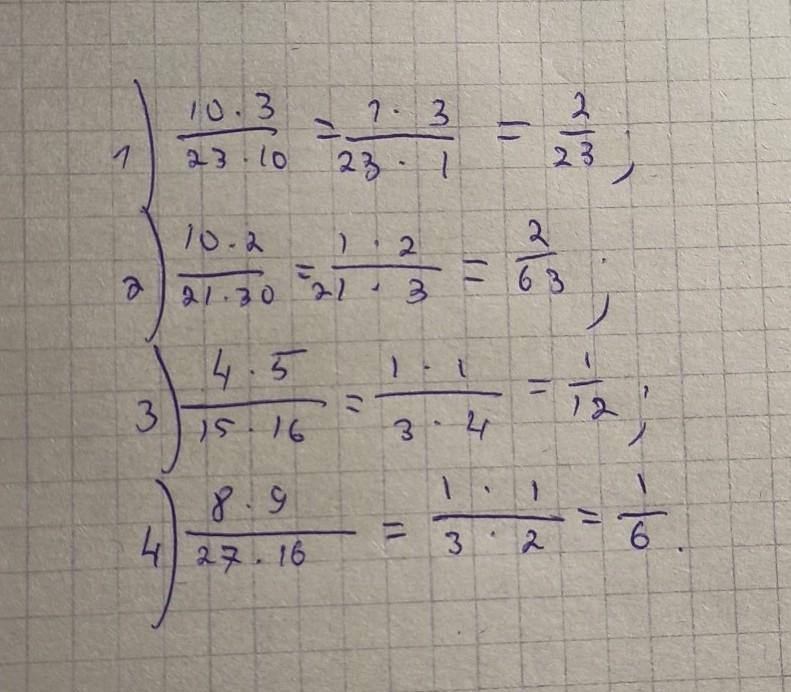 1) 10 · 3 / 23 · 10 = 1 · 3 / 23 · 1 = 2 / 23 ;
2) 10 · 2 / 21 · 30 = 1 · 2 / 21 · 3 = 2 / 63 ;
3) 4 · 5 / 15 · 16 = 1 · 1 / 3 · 4 = 1 / 12 ;
4) 8 · 9 / 27 · 16 = 1 · 1 / 3 · 2 = 1 / 6 .